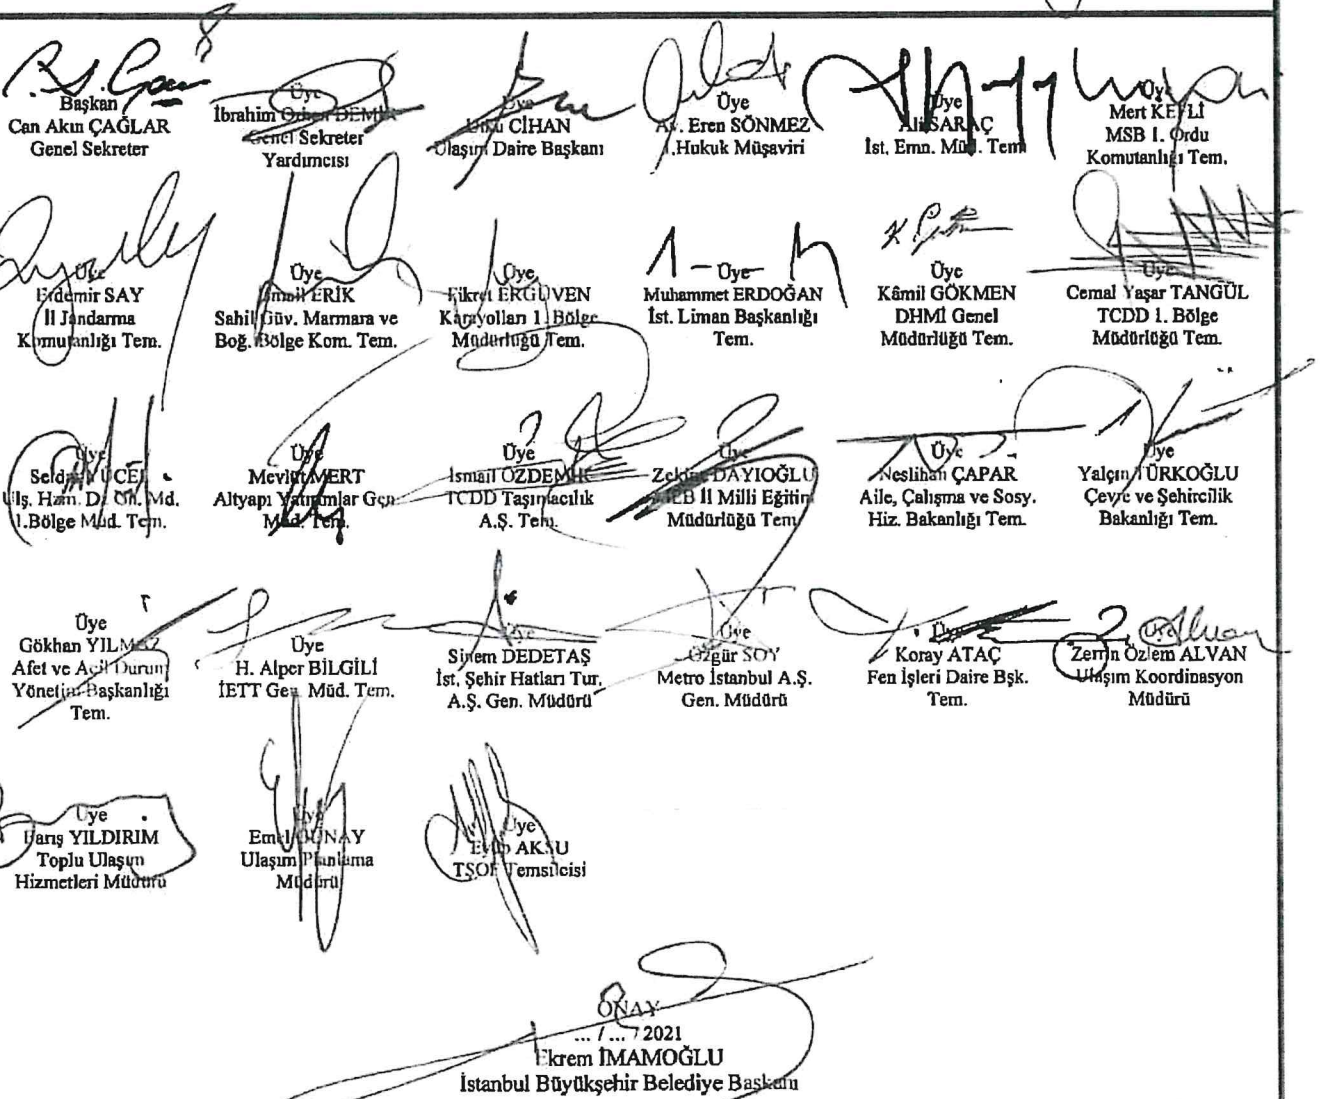 Başkan
Can Akın ÇAĞLAR
Genel Sekreter
Üye
İbrahim Orhan DEMİR
Genel Sekreter
Yardımcısı
Üye
Utku CİHAN
Ulaşım Daire Başkanı
Üye
Av. Eren SÖNMEZ
1.Hukuk Müşaviri
Üye
Ali SARAÇ
İst. Emn. Müd. Tem.
Üye
Mert KEFLİ
MSB 1. Ordu
Komutanlığı Tem.
Üye
Erdemir SAY
İl Jandarma
Komutanlığı Tem.
Üye
İsmail ERİK
Sahil Güv. Marmara ve
Boğ. Bölge Kom. Tem.
Üye
Fikret ERGÜVEN
Karayolları 1. Bölge
Müdürlüğü Tem.
Üye
Muhammet ERDOĞAN
İst. Liman Başkanlığı
Tem.
Üye
Kâmil GÖKMEN
DHMİ Genel
Müdürlüğü Tem.
Üye
Cemal Yaşar TANGÜL
TCDD 1. Bölge
Müdürlüğü Tem.
Üye
YÜCEL
Ulş. Hizm. Dz. Gn. Md.
1.Bölge Müd. Tem.
Üye
Mevlüt MERT
Altyapı Yatırımlar Gen.
Müd. Tem.
Üye
İsmail ÖZDEMİR
TCDD Taşımacılık
A.Ş. Tem.
Üye
DAYIOĞLU
MEB İl Milli Eğitim
Müdürlüğü Tem.
Üye
Neslihan ÇAPAR
Aile, Çalışma ve Sosy.
Hiz. Bakanlığı Tem.
Üye
Yalçın TÜRKOĞLU
Çevre ve Şehircilik
Bakanlığı Tem.
Üye
Gökhan YILMAZ
Afet ve Acil Durum
Yönetim Başkanlığı
Tem.
Üye
H. Alper BİLGİLİ
İETT Gen. Müd. Tem.
Üye
Sinem DEDETAŞ
İst. Şehir Hatları Tur.
A.Ş. Gen. Müdürü
Üye
Özgür SOY
Metro İstanbul A.Ş.
Gen. Müdürü
Üye
Koray ATAÇ
Fen İşleri Daire Bşk.
Tem.
Üye
Zerrin Özlem ALVAN
Ulaşım Koordinasyon
Müdürü
Üye
Barış YILDIRIM
Toplu Ulaşım
Hizmetleri Müdürü
Üye
GÜNAY
Ulaşım Planlama
Müdürü
Üye
Eyüp AKSU
TŞOF Temsilcisi
ONAY
... / ... / 2021
Ekrem İMAMOĞLU
İstanbul Büyükşehir Belediye Başkanı